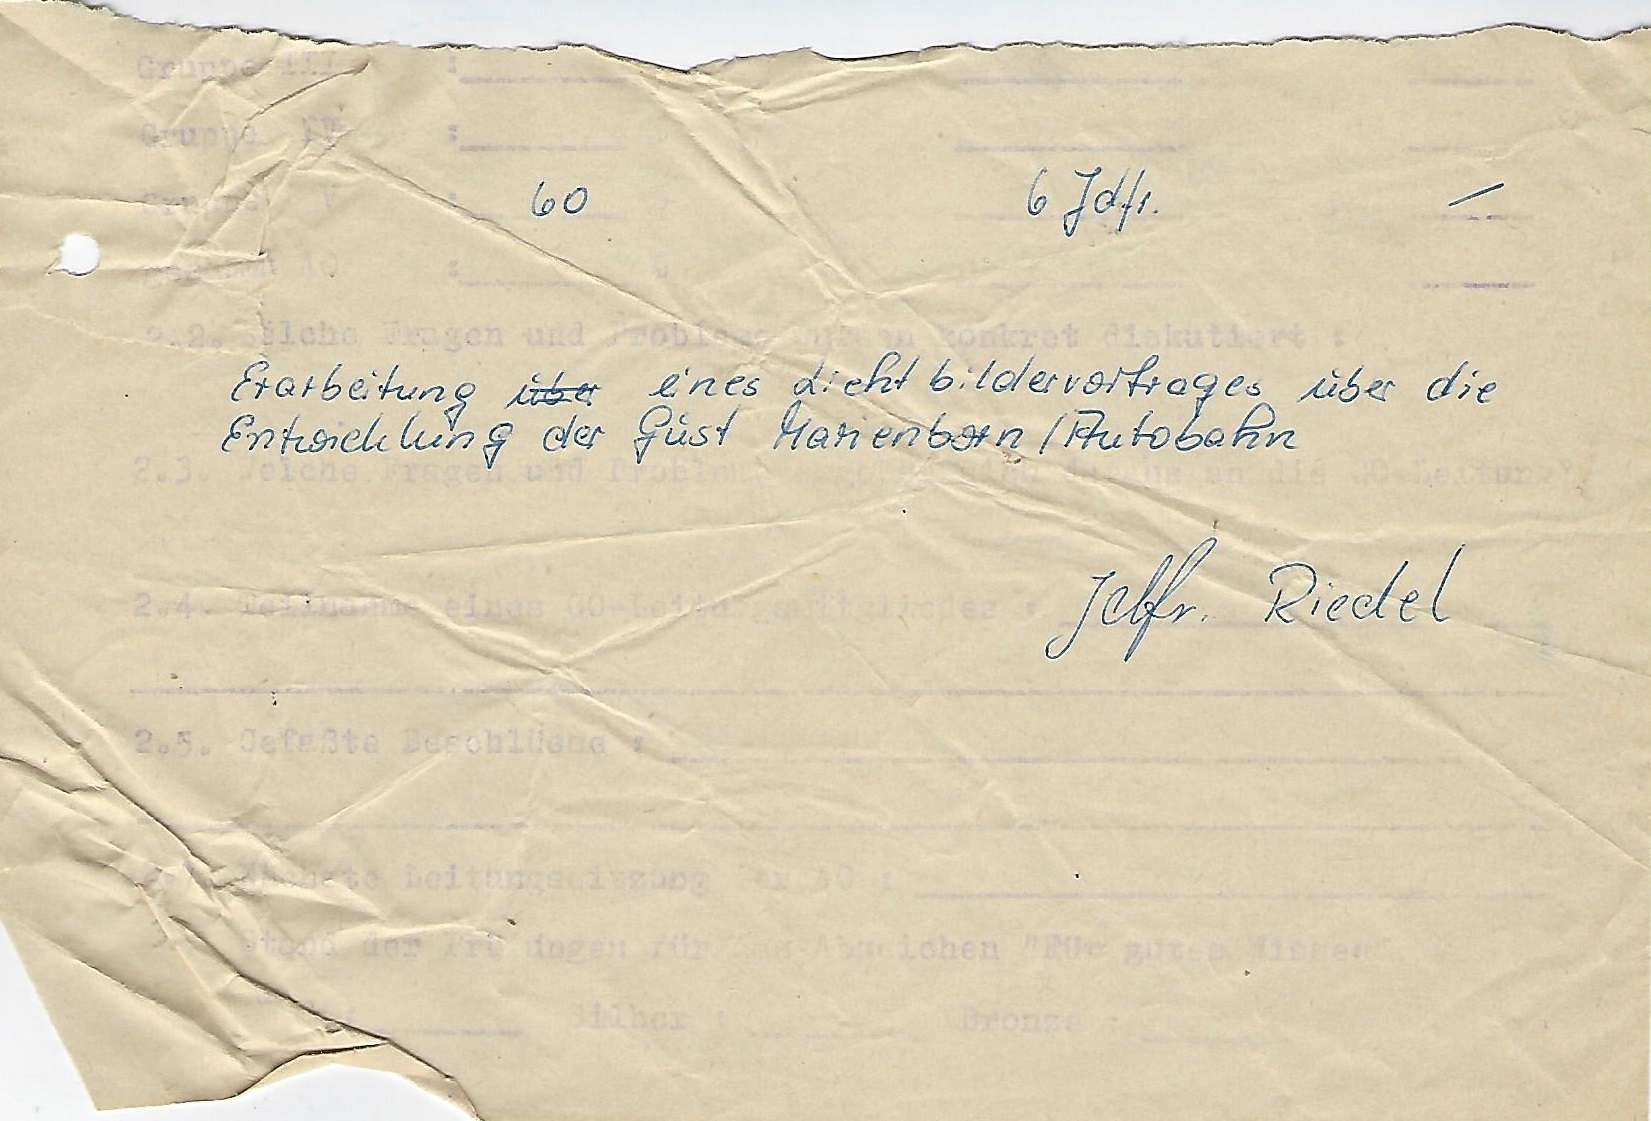 Gruppe III :
Gruppe IV :
Gruppe V : 60 6 Jdfr. —
AO :
2.2. Welche Fragen und Probleme wurden konkret diskutiert :
Erarbeitung über eines Lichtbildervortrages über die
Entwicklung der Güst Marienborn / Autobahn
2.3. Welche Fragen und Probleme an die GO-Leitung
Jdfr. Riedel
2.4. Teilnahme eines GO-Leitungsmitgliedes :
2.5. Gefaßte Beschlüsse :
Nächste Leitungssitzung der AO :
Stand der für das Abzeichen "Für gutes Wissen"
Silber : Bronze :